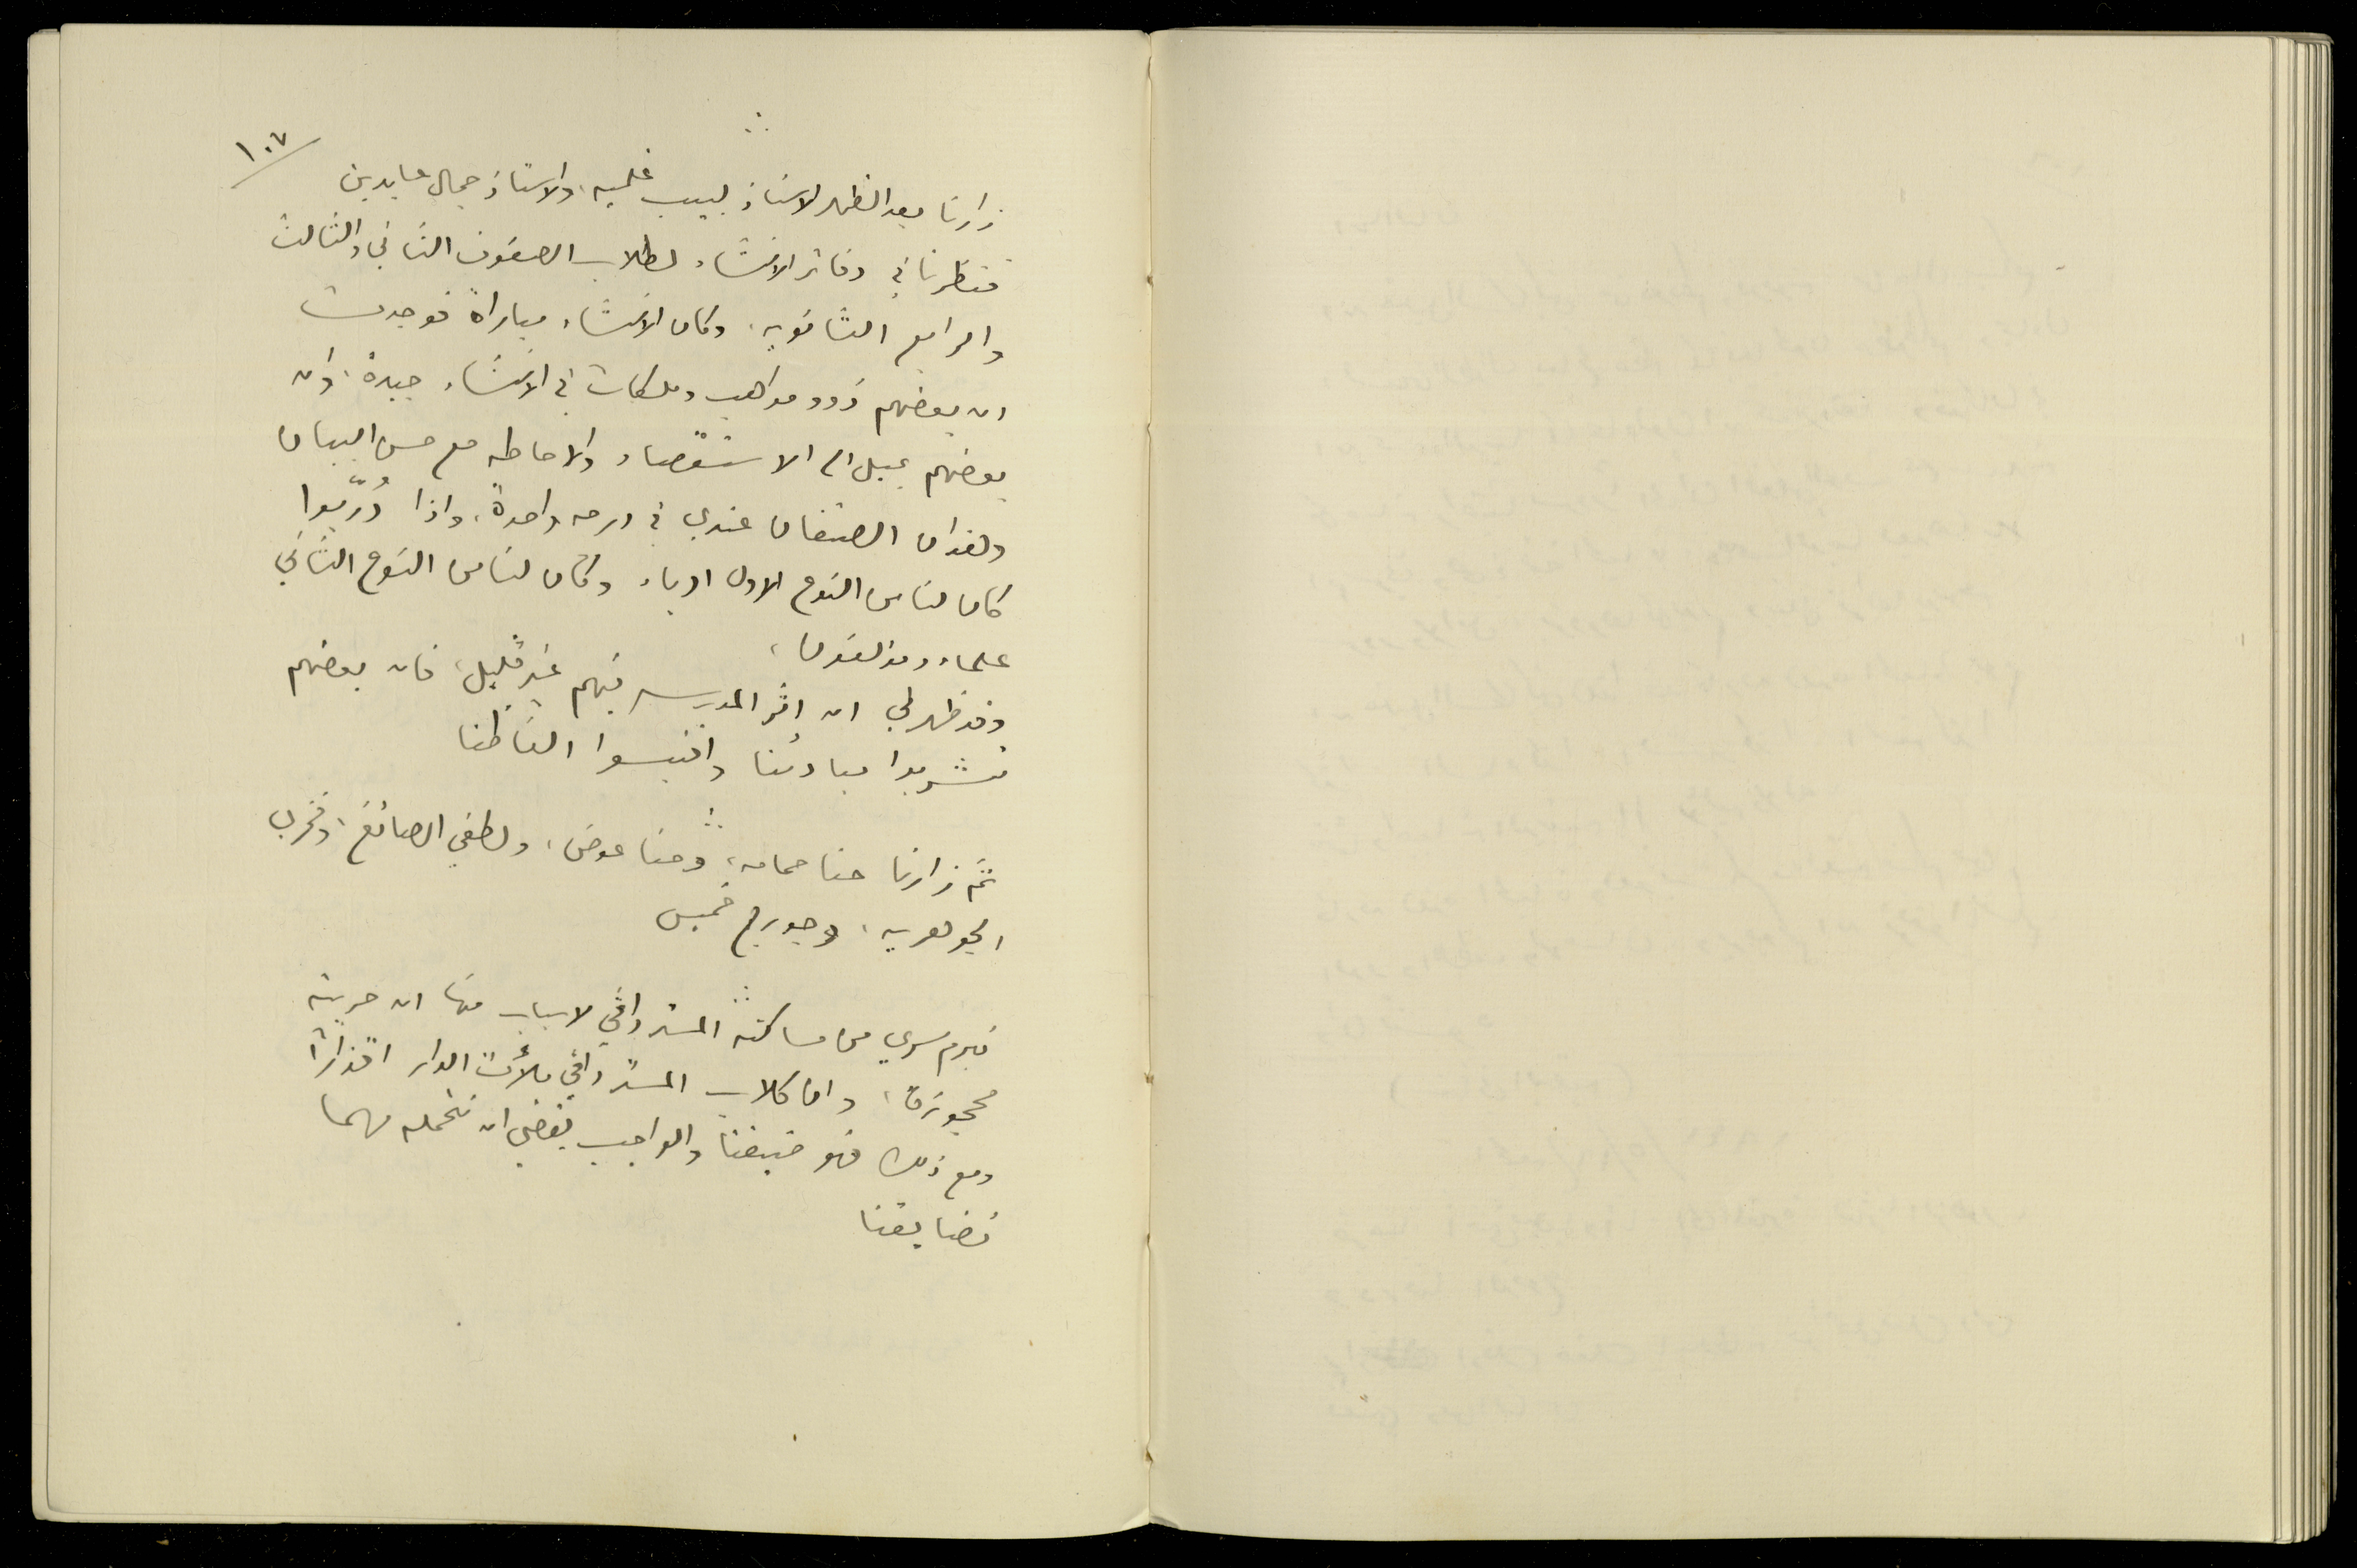 ١٠٧
زارنا بعد الظهر الاستاذ لبيب غلميه، والاستاذ جمال عابدين
فنظرنا في دفاتر الانشاء لطلاب الصفوف الثاني والثالث
والرابع الثانويه، وكان الانشاء مباراة فوجدت
ان بعضهم ذوو مواهب وملكات في الانشاء جيدة، وان
بعضهم يميل الى الاستقصاء والاحاطه مع حسن البيان
وهذان الصنفان عندي في درجه واحدة، واذا دُرّبوا
كان لنا من النوع الاول ادباء وكان لنا من النوع الثاني
علماء ومؤلفون،
وقد ظهر لي ان اثر المدرسه فيهم غير قليل، فان بعضهم
تشربوا مبادئنا واقتبسوا الفاظنا
ثم زارنا حنا حمامه، وحنا عوض، ولطفي الصائغ، وفخري
الجوهريه، وجورج خميس
تبرم سري من مساكنة المستر واڤي لاسباب منها ان حريته
محجوزة، وان كلاب المستر واڤي ملأت الدار اقذارا
ومع ذلك فهو ضيفنا والواجب يقضي ان نتحمله مهما
تضايقنا